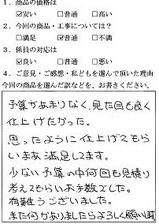 1．商品の価格は
☑安い　□普通　□高い
2．今回の商品・工事については？
☑満足　□普通　□不満
3．係員の対応は
☑良い　□普通　□悪い
4．ご意見・ご感想・私どもを選んで頂いた理由
今回の商品を選んだ訳などを、お書きください。
予算があまりなく、見た目も良く
仕上げたかった。
思ったように仕上げてもら
いまあ満足します。
少ない予算の中何回も見積り
考えてもらいお手数でした。
有難うございました。
また何かありましたらよろしく願い